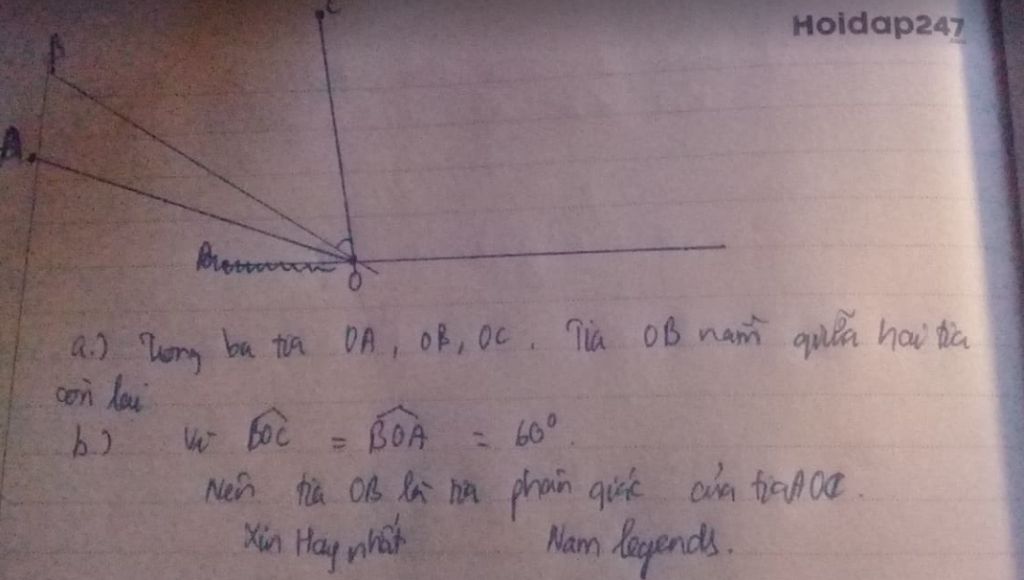 C
Hoidap247
B
A
O
a.) Trong ba tia OA, OB, OC. Tia OB nằm giữa hai tia
còn lại
b.) Vì BOC = BOA = 60°.
Nên tia OB là tia phân giác của tia AOC.
Xin Hay nhất Nam legends.